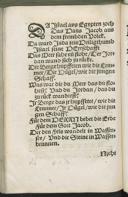 DA Israel aus Egypten zoch
Das Haus Jacob aus
dem frembden Volck.
Da ward Juda sein Heiligthumb
Israel seine Herrschafft.
Das Meer sahe und flohe, Der Jor-
dan wand sich zu rücke.
Die Berge hupfften wie die Lem-
mer, Die Hügel, wie die jungen
Schaff.
Was war dir du Meer das du flo-
hest, Und du Jordan, das du
zu rück wandtest?
Ir Berge das ir hupfftet, wie die
Lemmer, Ir Hügel, wie die jun-
gen Schaff.
Für dem HERRN bebet die Erde
Für dem Gott Jacob.
Der den Fels wandelt in Wasser-
see, Und die Stein in Wasser-
brunnen.
Nicht